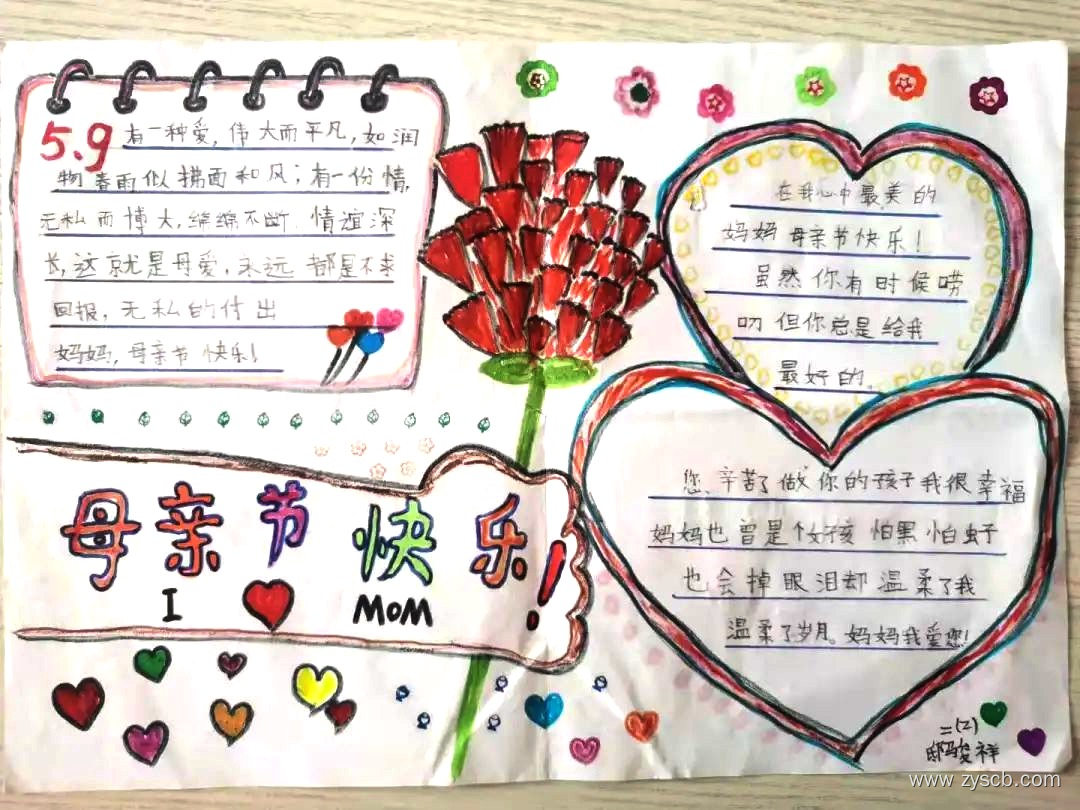 5.9 有一种爱，伟大而平凡，如润
物春雨似拂面和风；有一份情，
无私而博大，绵绵不断．情谊深
长，这就是母爱，永远都是不求
回报，无私的付出
妈妈，母亲节快乐！
在我心中最美的
妈妈母亲节快乐！
虽然你有时候唠
叨但你总是给我
最好的。
母亲节快乐！
I MOM
您辛苦了做你的孩子我很幸福
妈妈也曾是个女孩怕黑怕虫子
也会掉眼泪却温柔了我
温柔了岁月。妈妈我爱您！
二(2)
邸骏祥
www.zyscb.com